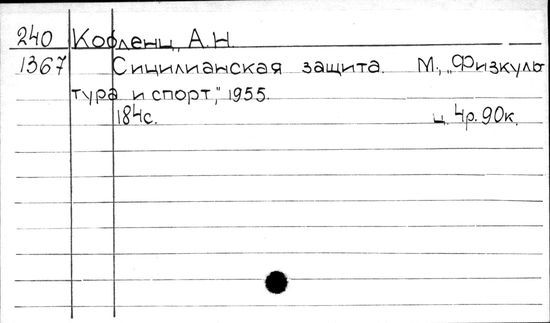 240 Кобленц, А.Н.
1367 Сицилианская защита. М., „Физкуль
тура и спорт," 1955.
184с. ц. 4р. 90к.